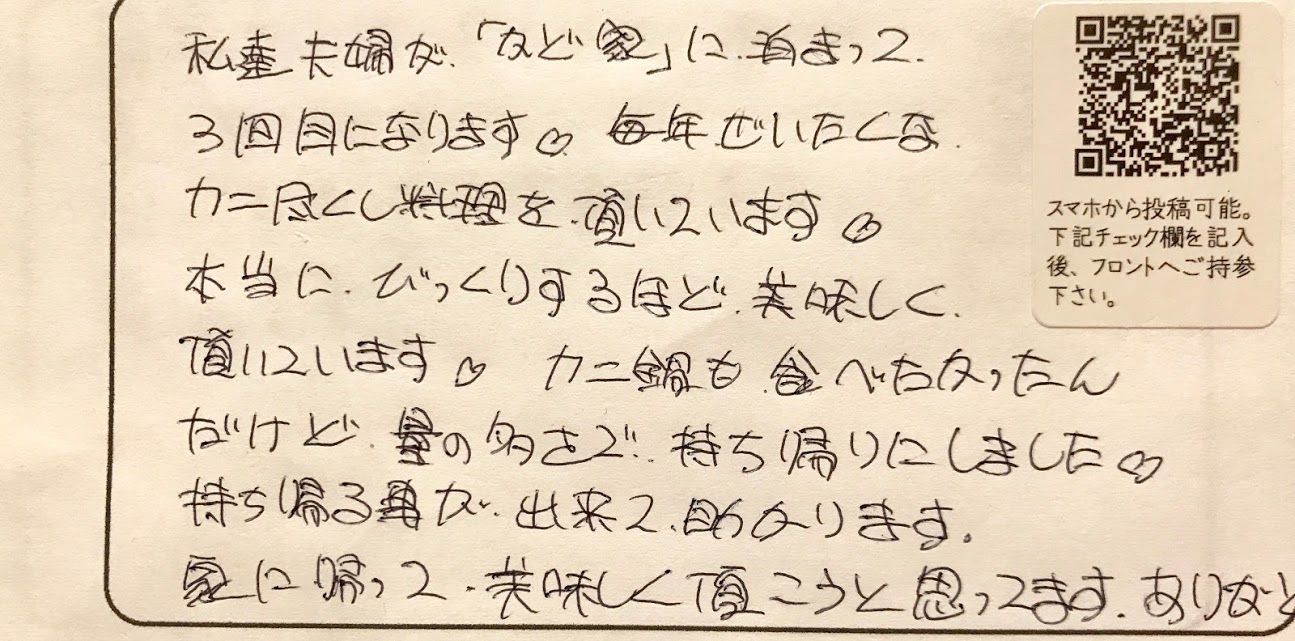 私達夫婦が、「など家」に、泊まって、
3回目になります♡ 毎年ぜいたくな、
カニ尽くし料理を、頂いています♡
本当に、びっくりするほど、美味しく、
頂いています♡ カニ鍋も食べたかったん
だけど、量の多さで、持ち帰りにしました♡
持ち帰る事が、出来て、助かります。
家に帰って、美味しく頂こうと思ってます。ありがと
スマホから投稿可能。
下記チェック欄を記入
後、フロントへご持参
下さい。